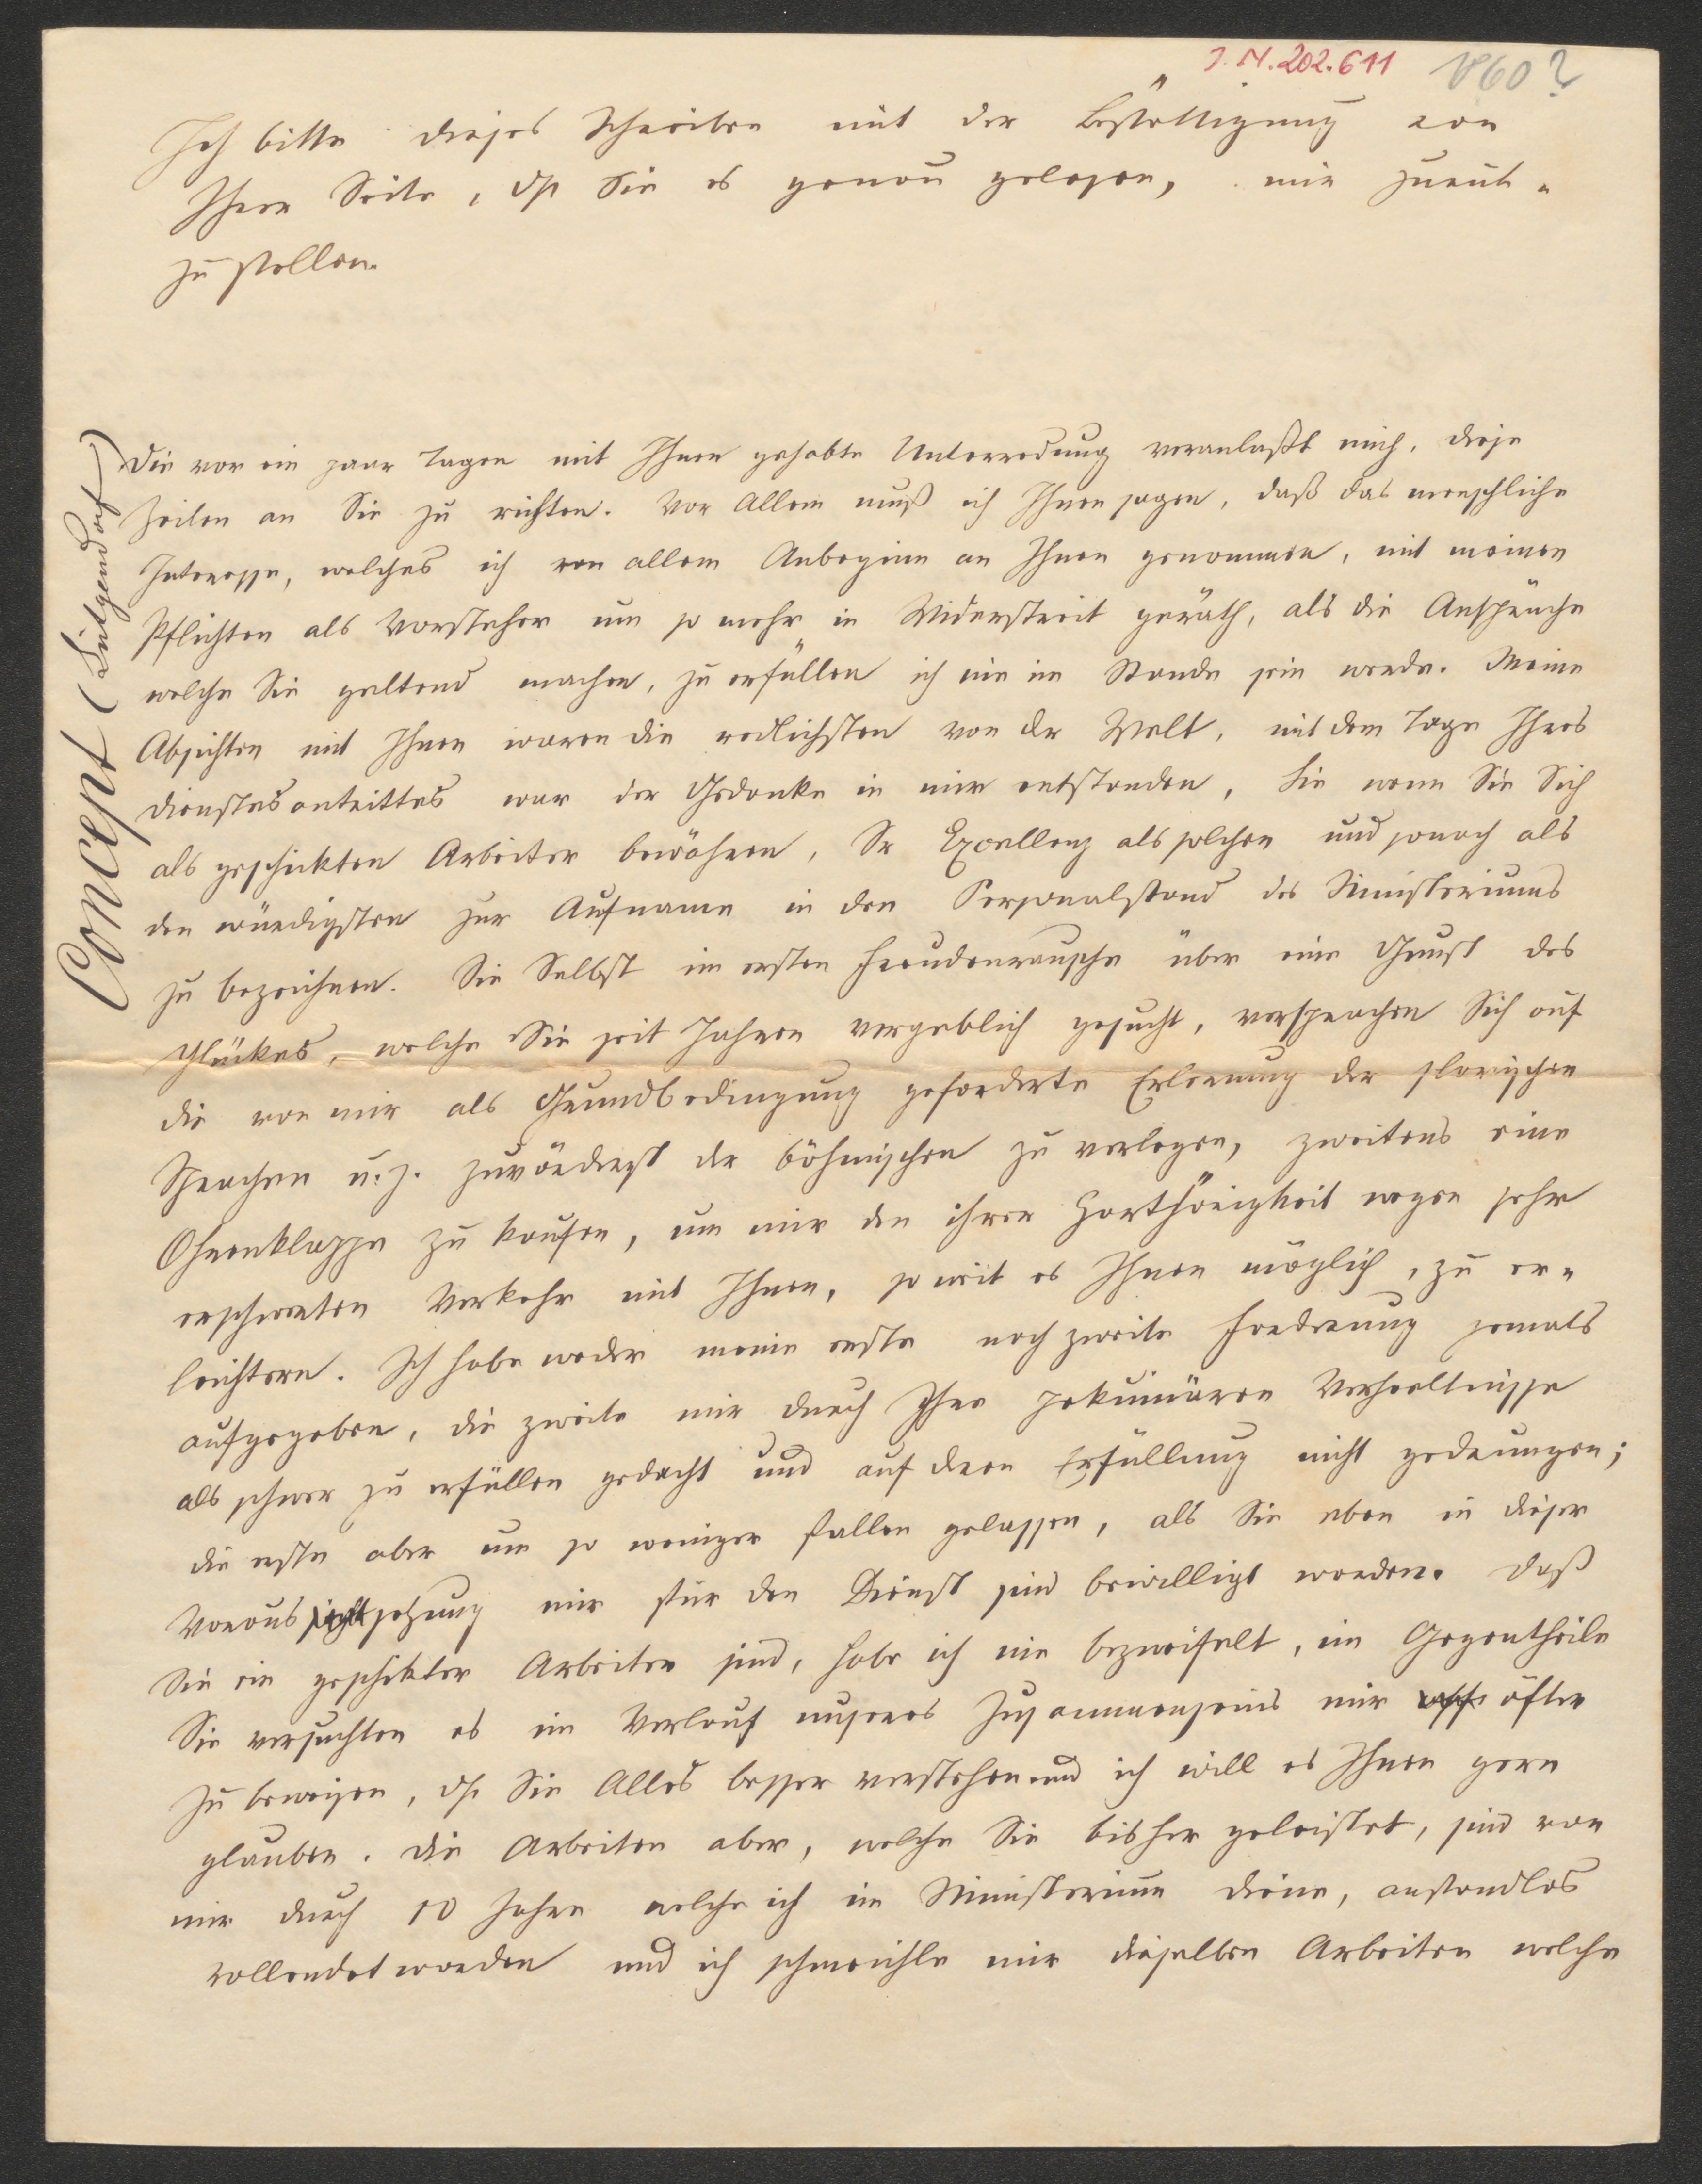 I. N. 202.611 1860?
Ich bitte dieses Schreiben mit der Bestättigung von
Ihrer Seite, dß Sie es genau gelesen, mir zurück-
zu stellen.
Concept (Lütgendorf)
Die vor ein paar Tagen mit Ihnen gehabte Unterredung veranlaßt mich, diese
Zeilen an Sie zu richten. Vor Allem muß ich Ihnen sagen, daß das menschliche
Interesse, welches ich von allem Anbeginn an Ihnen genommen, mit meinen
Pflichten als Vorsteher um so mehr in Widerstreit geräth, als die Ansprüche
welche Sie geltend machen, zu erfüllen ich nie im Stande sein werde. Meine
Absichten mit Ihnen waren die redlichsten von der Welt, mit dem Tage Ihres
Dienstesantrittes war der Gedanke in mir entstanden, Sie wenn Sie Sich
als geschickten Arbeiter bewähren, Sr Excellenz als solchen und sonach als
den würdigsten zur Aufname in den Personalstand des Ministeriums
zu bezeichnen. Sie Selbst im ersten Freudenrausche über eine Gunst des
Glückes, welche Sie seit Jahren vergeblich gesucht, versprachen Sich auf
die von mir als Grundbedingung geforderte Erlernung der slavischen
Sprachen u. z. zuvörderst der böhmischen zu verlegen, zweitens eine
Ohrenklappe zu kaufen, um mir den ihrer Harthörigkeit wegen sehr
erschwerten Verkehr mit Ihnen, so weit es Ihnen möglich, zu er-
leichtern. Ich habe weder meine erste noch zweite Forderung jemals
aufgegeben, die zweite mir durch Ihre pekuniären Verhältnisse
als schwer zu erfüllen gedacht und auf deren Erfüllung nicht gedrungen;
die erste aber um so weniger fallen gelassen, als Sie eben in dieser
Voraussetzung mir für den Dienst sind bewilligt worden. Daß
Sie ein geschikter Arbeiter sind, habe ich nie bezweifelt, im Gegentheile
Sie versuchten es im Verlauf unseres Zusammenseins mir öfter
zu beweisen, dß Sie Alles besser verstehen und ich will es Ihnen gern
glauben. Die Arbeiten aber, welche Sie bisher geleistet, sind von
mir durch 10 Jahre welche ich im Ministerium diene, anstandlos
vollendet worden und ich schmeichle mir dieselben Arbeiten welche